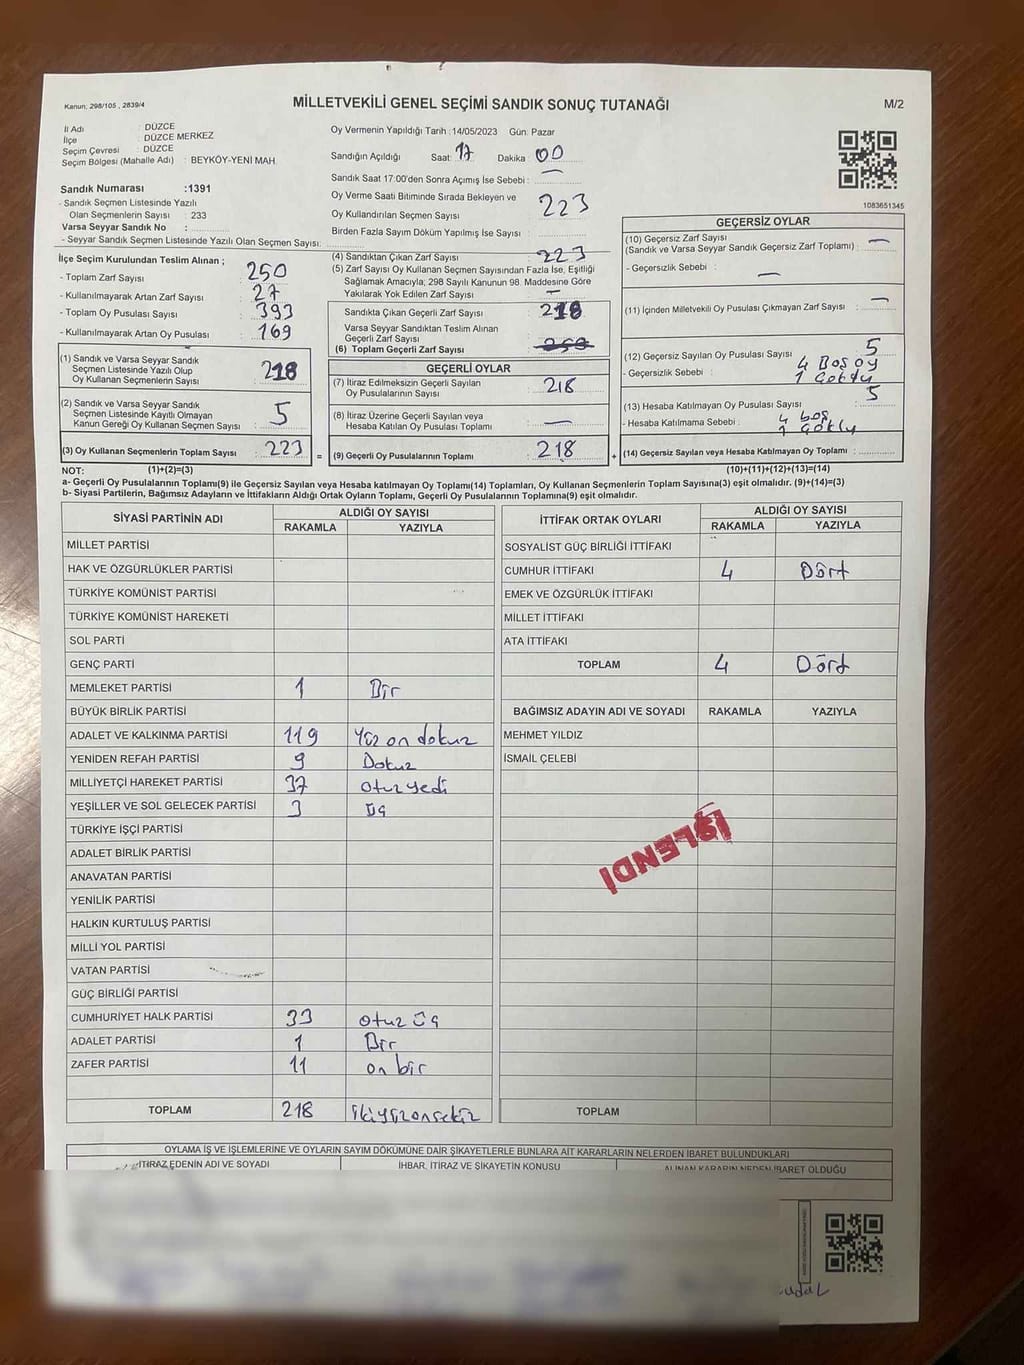 MİLLETVEKİLİ GENEL SEÇİMİ SANDIK SONUÇ TUTANAĞI
Kanun, 298/105 , 2839/4
M/2
İl Adı : DÜZCE
İlçe : DÜZCE MERKEZ
Seçim Çevresi : DÜZCE
Seçim Bölgesi (Mahalle Adı) : BEYKÖY-YENİ MAH.
Sandık Numarası :1391
- Sandık Seçmen Listesinde Yazılı
Olan Seçmenlerin Sayısı : 233
Varsa Seyyar Sandık No :
- Seyyar Sandık Seçmen Listesinde Yazılı Olan Seçmen Sayısı:
Oy Vermenin Yapıldığı Tarih :14/05/2023 Gün: Pazar
Sandığın Açıldığı Saat: 17 Dakika : 00
Sandık Saat 17:00'den Sonra Açımış İse Sebebi : —
Oy Verme Saati Bitiminde Sırada Bekleyen ve
Oy Kullandırılan Seçmen Sayısı : 223
Birden Fazla Sayım Döküm Yapılmış İse Sayısı :
1083651345
İlçe Seçim Kurulundan Teslim Alınan ;
- Toplam Zarf Sayısı : 250
- Kullanılmayarak Artan Zarf Sayısı : 27
- Toplam Oy Pusulası Sayısı : 393
- Kullanılmayarak Artan Oy Pusulası : 169
(1) Sandık ve Varsa Seyyar Sandık
Seçmen Listesinde Yazılı Olup
Oy Kullanan Seçmenlerin Sayısı : 218
(2) Sandık ve Varsa Seyyar Sandık
Seçmen Listesinde Kayıtlı Olmayan
Kanun Gereği Oy Kullanan Seçmen Sayısı : 5
(3) Oy Kullanan Seçmenlerin Toplam Sayısı : 223 =
(4) Sandıktan Çıkan Zarf Sayısı : 223
(5) Zarf Sayısı Oy Kullanan Seçmen Sayısından Fazla İse, Eşitliği
Sağlamak Amacıyla, 298 Sayılı Kanunun 98. Maddesine Göre
Yakılarak Yok Edilen Zarf Sayısı : —
Sandıkta Çıkan Geçerli Zarf Sayısı : 218
Varsa Seyyar Sandıktan Teslim Alınan
Geçerli Zarf Sayısı :
(6) Toplam Geçerli Zarf Sayısı :
GEÇERLİ OYLAR
(7) İtiraz Edilmeksizin Geçerli Sayılan
Oy Pusulalarının Sayısı : 218
(8) İtiraz Üzerine Geçerli Sayılan veya
Hesaba Katılan Oy Pusulası Toplamı : —
(9) Geçerli Oy Pusulalarının Toplamı : 218 +
GEÇERSİZ OYLAR
(10) Geçersiz Zarf Sayısı : —
(Sandık ve Varsa Seyyar Sandık Geçersiz Zarf Toplamı)
- Geçersizlik Sebebi : —
(11) İçinden Milletvekili Oy Pusulası Çıkmayan Zarf Sayısı : —
(12) Geçersiz Sayılan Oy Pusulası Sayısı : 5
- Geçersizlik Sebebi : 4 Boş oy
1 Çoklu
(13) Hesaba Katılmayan Oy Pusulası Sayısı : 5
- Hesaba Katılmama Sebebi : 4 boş
1 Çoklu
(14) Geçersiz Sayılan veya Hesaba Katılmayan Oy Toplamı :
NOT: (1)+(2)=(3) (10)+(11)+(12)+(13)=(14)
a- Geçerli Oy Pusulalarının Toplamı(9) ile Geçersiz Sayılan veya Hesaba katılmayan Oy Toplamı(14) Toplamları, Oy Kullanan Seçmenlerin Toplam Sayısına(3) eşit olmalıdır. (9)+(14)=(3)
b- Siyasi Partilerin, Bağımsız Adayların ve İttifakların Aldığı Ortak Oyların Toplamı, Geçerli Oy Pusulalarının Toplamına(9) eşit olmalıdır.
SİYASİ PARTİNİN ADI ALDIĞI OY SAYISI
RAKAMLA YAZIYLA
MİLLET PARTİSİ
HAK VE ÖZGÜRLÜKLER PARTİSİ
TÜRKİYE KOMÜNİST PARTİSİ
TÜRKİYE KOMÜNİST HAREKETİ
SOL PARTİ
GENÇ PARTİ
MEMLEKET PARTİSİ 1 Bir
BÜYÜK BİRLİK PARTİSİ
ADALET VE KALKINMA PARTİSİ 119 Yüz on dokuz
YENİDEN REFAH PARTİSİ 9 Dokuz
MİLLİYETÇİ HAREKET PARTİSİ 37 otuz yedi
YEŞİLLER VE SOL GELECEK PARTİSİ 3 üç
TÜRKİYE İŞÇİ PARTİSİ
ADALET BİRLİK PARTİSİ
ANAVATAN PARTİSİ
YENİLİK PARTİSİ
HALKIN KURTULUŞ PARTİSİ
MİLLİ YOL PARTİSİ
VATAN PARTİSİ
GÜÇ BİRLİĞİ PARTİSİ
CUMHURİYET HALK PARTİSİ 33 otuz üç
ADALET PARTİSİ 1 Bir
ZAFER PARTİSİ 11 on bir
TOPLAM 218 ikiyüzonsekiz
İTTİFAK ORTAK OYLARI ALDIĞI OY SAYISI
RAKAMLA YAZIYLA
SOSYALİST GÜÇ BİRLİĞİ İTTİFAKI
CUMHUR İTTİFAKI 4 Dört
EMEK VE ÖZGÜRLÜK İTTİFAKI
MİLLET İTTİFAKI
ATA İTTİFAKI
TOPLAM 4 Dört
BAĞIMSIZ ADAYIN ADI VE SOYADI RAKAMLA YAZIYLA
MEHMET YILDIZ
İSMAİL ÇELEBİ
İŞLENDİ
TOPLAM
OYLAMA İŞ VE İŞLEMLERİNE VE OYLARIN SAYIM DÖKÜMÜNE DAİR ŞİKAYETLERLE BUNLARA AİT KARARLARIN NELERDEN İBARET BULUNDUKLARI
İTİRAZ EDENİN ADI VE SOYADI İHBAR, İTİRAZ VE ŞİKAYETİN KONUSU ALINAN KARARIN NEDEN İBARET OLDUĞU